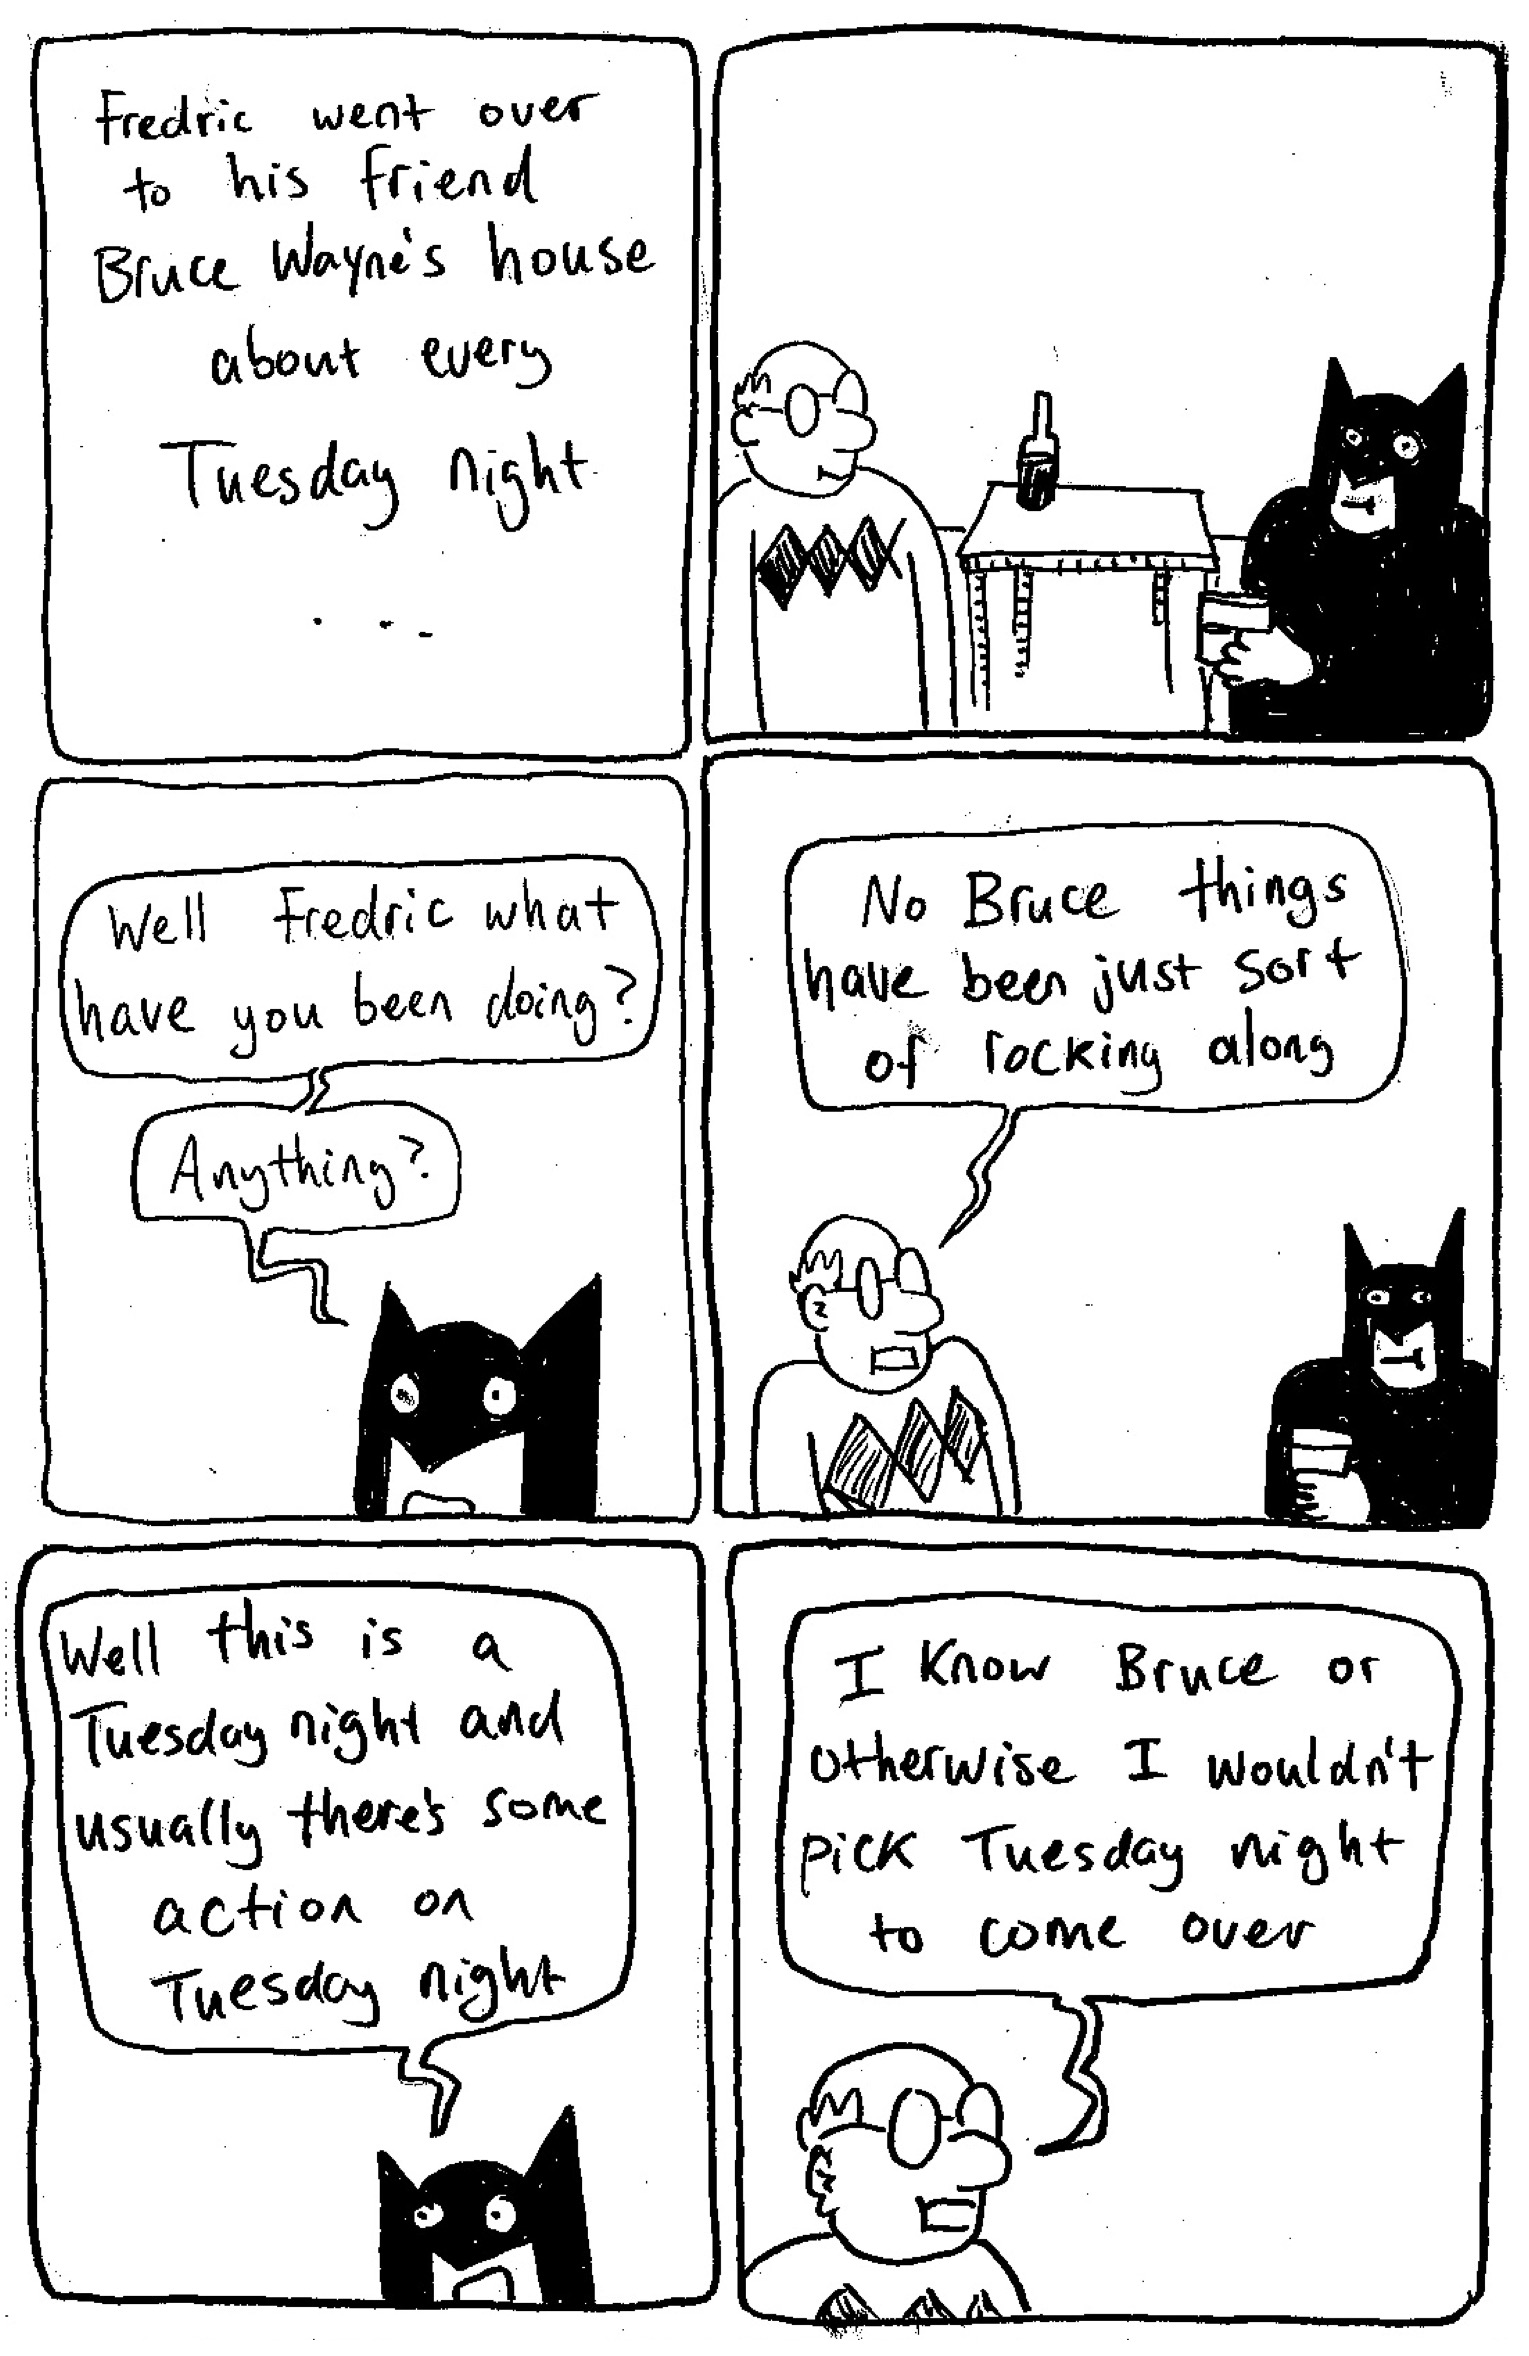 Fredric went over
to his friend
Bruce Wayne's house
about every
Tuesday night
...
Well Fredric what
have you been doing?
Anything?
No Bruce things
have been just sort
of rocking along
Well this is a
Tuesday night and
usually there's some
action on
Tuesday night
I know Bruce or
otherwise I wouldn't
pick Tuesday night
to come over